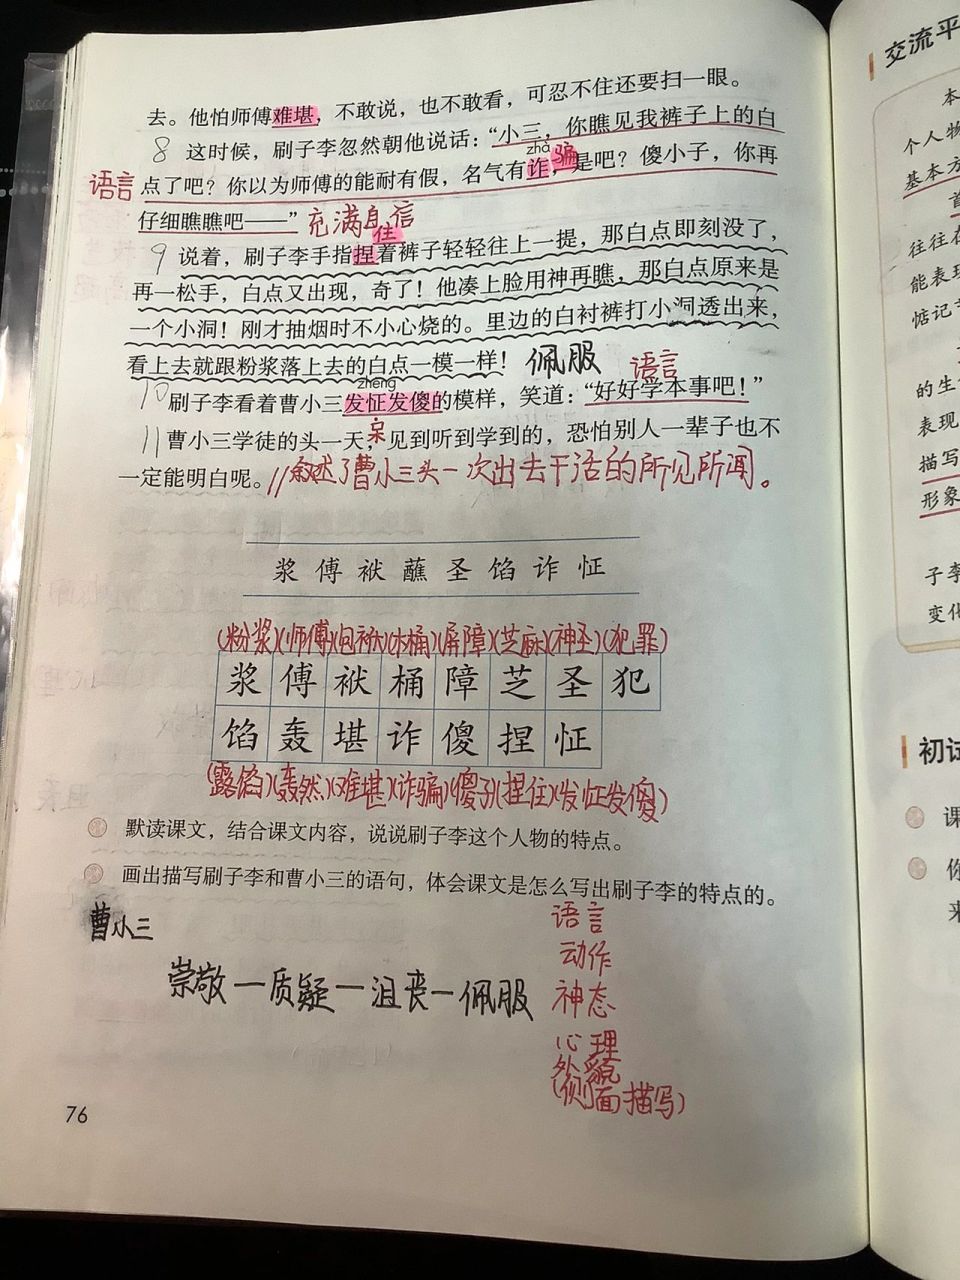 去。他怕师傅难堪，不敢说，也不敢看，可忍不住还要扫一眼。
8 这时候，刷子李忽然朝他说话：“小三，你瞧见我裤子上的白
zhà 骗
语言 点了吧？你以为师傅的能耐有假，名气有诈，是吧？傻小子，你再
仔细瞧瞧吧——” 充满自信
住
9 说着，刷子李手指捏着裤子轻轻往上一提，那白点即刻没了，
再一松手，白点又出现，奇了！他凑上脸用神再瞧，那白点原来是
一个小洞！刚才抽烟时不小心烧的。里边的白衬裤打小洞透出来，
看上去就跟粉浆落上去的白点一模一样！ 佩服 语言
zheng
10 刷子李看着曹小三发怔发傻的模样，笑道：“好好学本事吧！”
11 曹小三学徒的头一天，见到听到学到的，恐怕别人一辈子也不
一定能明白呢。//叙述了曹小三头一次出去干活的所见所闻。
浆 傅 袱 蘸 圣 馅 诈 怔
(粉浆)(师傅)(包袱)(木桶)(屏障)(芝麻)(神圣)(犯罪)
浆 傅 袱 桶 障 芝 圣 犯
馅 轰 堪 诈 傻 捏 怔
(露馅)(轰然)(难堪)(诈骗)(傻子)(捏住)(发怔发傻)
默读课文，结合课文内容，说说刷子李这个人物的特点。
画出描写刷子李和曹小三的语句，体会课文是怎么写出刷子李的特点的。
曹小三
崇敬—质疑—沮丧—佩服
语言
动作
神态
心理
外貌
(侧面描写)
76
交流平
本
个人物
基本方
首
往往在
能表现
惦记
的生
表现
描写
形象
子李
变化
初试
课
你
来